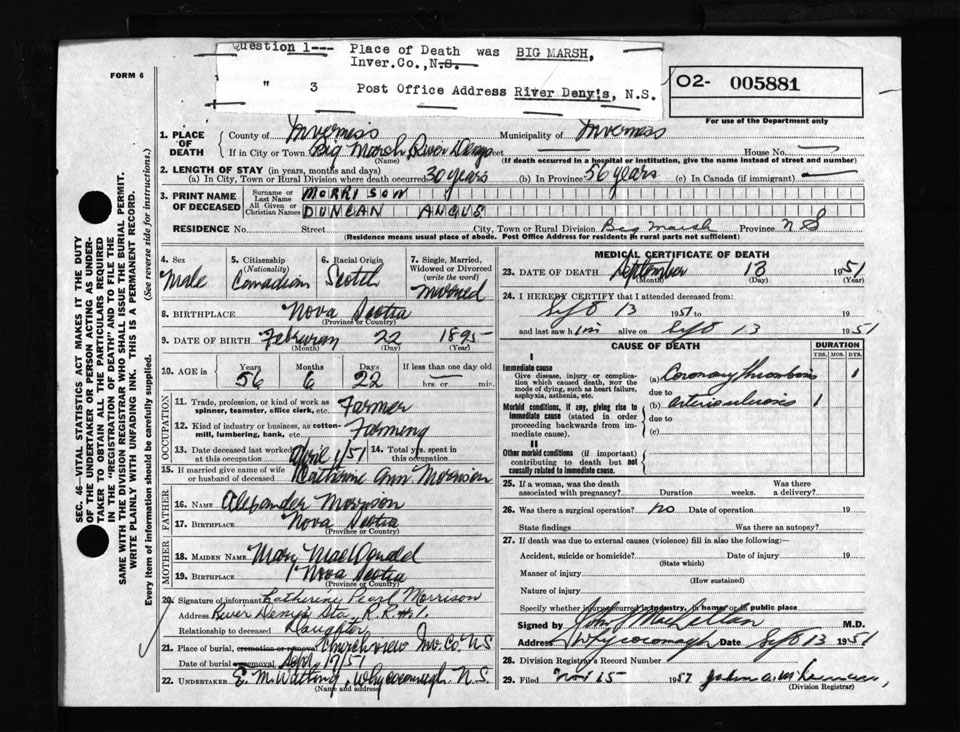 Question 1--- Place of Death was BIG MARSH,
Inver.Co.,N.S.
" 3 Post Office Address River Deny's, N.S.
FORM 6
O2- 005881
For use of the Department only
1. PLACE OF DEATH
County of Inverness Municipality of Inverness
If in City or Town Big Marsh, River Denys Street House No. —
(Name) (If death occurred in a hospital or institution, give the name instead of street and number)
2. LENGTH OF STAY (in years, months and days)
(a) In City, Town or Rural Division where death occurred 30 years (b) In Province 56 years (c) In Canada (if immigrant) —
3. PRINT NAME OF DECEASED
Surname or Last Name MORRISON
All Given or Christian Names DUNCAN ANGUS
RESIDENCE No. Street City, Town or Rural Division Big Marsh Province N S
(Residence means usual place of abode. Post Office Address for residents in rural parts not sufficient)
4. Sex Male
5. Citizenship (Nationality) Canadian
6. Racial Origin Scotch
7. Single, Married, Widowed or Divorced (write the word) Married
8. BIRTHPLACE Nova Scotia
(Province or Country)
9. DATE OF BIRTH February 22 1895
(Month) (Day) (Year)
10. AGE in Years 56 Months 6 Days 22 If less than one day old — hrs. or min.
OCCUPATION
11. Trade, profession, or kind of work as spinner, teamster, office clerk, etc. Farmer
12. Kind of industry or business, as cotton-mill, lumbering, bank, etc. Farming
13. Date deceased last worked at this occupation April 1/51 14. Total yrs. spent in this occupation
15. If married give name of wife or husband of deceased Catherine Ann Morrison
FATHER
16. Name Alexander Morrison
17. Birthplace Nova Scotia
(Province or Country)
MOTHER
18. Maiden Name Mary
19. Birthplace Nova Scotia
(Province or Country)
20. Signature of informant Catherine Pearl Morrison
Address River Denys Sta. R.R.#1.
Relationship to deceased Daughter
21. Place of burial, cremation or removal Churchview Inv. Co. N S
Date of burial or removal Sept 17/51
22. UNDERTAKER E. M. Watling, Whycocomagh N.S.
(Name and address)
MEDICAL CERTIFICATE OF DEATH
23. DATE OF DEATH September 13 1951
(Month) (Day) (Year)
24. I HEREBY CERTIFY that I attended deceased from:
Sept 13 1951 to 19
and last saw him alive on Sept 13 1951
CAUSE OF DEATH
DURATION
YRS. MOS. DYS.
I
Immediate cause
Give disease, injury or complication which caused death, NOT the mode of dying, such as heart failure, asphyxia, asthenia, etc.
(a) Coronary thrombosis 1
due to
Morbid conditions, if any, giving rise to immediate cause (stated in order proceeding backwards from immediate cause).
(b) arteriosclerosis 1
due to
(c)
II
Other morbid conditions (if important) contributing to death but not causally related to immediate cause.
25. If a woman, was the death associated with pregnancy? Duration weeks. Was there a delivery?
26. Was there a surgical operation? no Date of operation 19
State findings Was there an autopsy?
27. If death was due to external causes (violence) fill in also the following:—
Accident, suicide or homicide? Date of injury 19
(State which)
Manner of injury
(How sustained)
Nature of injury
Specify whether injury occurred in industry, in home, or in public place
Signed by John J MacLellan M.D.
Address Whycocomagh Date Sept 13 1951
28. Division Registry's Record Number
29. Filed Nov 15 1951 John A.
(Division Registrar)
SEC. 46—VITAL STATISTICS ACT MAKES IT THE DUTY
OF THE UNDERTAKER OR PERSON ACTING AS UNDER-
TAKER TO OBTAIN ALL THE PARTICULARS REQUIRED
IN THE "REGISTRATION OF DEATH" AND TO FILE THE
SAME WITH THE DIVISION REGISTRAR WHO SHALL ISSUE THE BURIAL PERMIT.
WRITE PLAINLY WITH UNFADING INK. THIS IS A PERMANENT RECORD.
Every item of information should be carefully supplied. (See reverse side for instructions.)